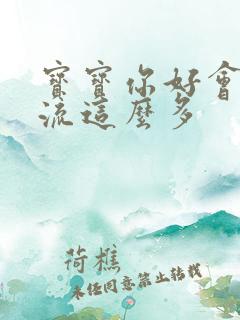 寶寶你好會
流這麼多
荷樵
未经同意禁止转载